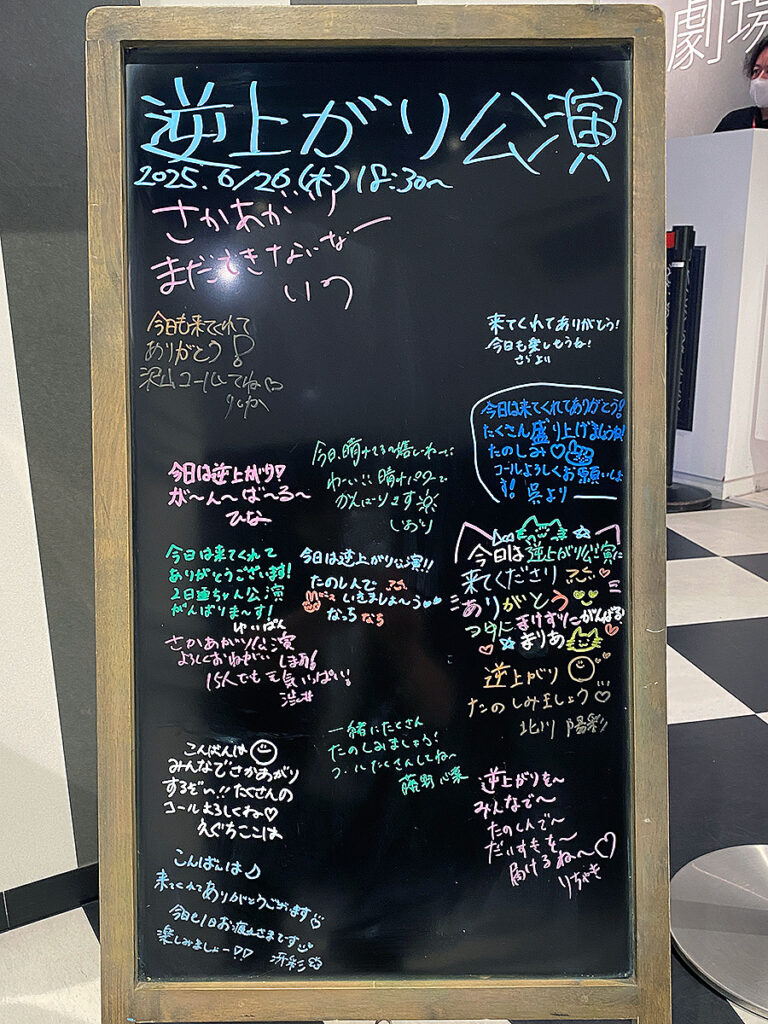 劇場
逆上がり公演
2025.6/26(木)18:30~
さかあがり
まだできないなー
いつ
今日も来てくれて
ありがとう!
沢山コールしてね♡
りんか
来てくれてありがとう!
今日も楽しもうね!
さらより
今日は来てくれてありがとう!
たくさん盛り上げましょうね!
たのしみ♡
コールよろしくお願いしま
す! 呉より
今日は逆上がり!
が〜ん〜ば〜る〜
ひな
今日、晴れてる〜嬉しいわ〜!!
わーい!!晴れパワーで
がんばります☀
しおり
今日は来てくれて
ありがとうございます!
2日連ちゃん公演
がんばりま〜す!
ゆいぱん
今日は逆上がり公演!!
たのしんで
いきましょ〜う♡♡
なっち なち
今日は逆上がり公演に
来てくださり
ありがとう
つりに まけずににがんばる!
まりあ
さかあがり公演
よろしくおねがい します!
15人でも元気いっぱい!
渋井
逆上がり
たのしみましょう♡
北川 陽彩
一緒にたくさん
たのしみましょう!
コールたくさんしてね〜
藤野 心葉
こんばんは
みんなでさかあがり
するぞい!!たくさんの
コールよろしくね♡
えぐちここは
逆上がりを〜
みんなで〜
たのしんで〜
だいすきを〜
届けるね〜♡
りちゃも
こんばんは♪
来てくれてありがとうございます
今日も1日お疲れさまです
楽しみましょー♡♡ 冴彩